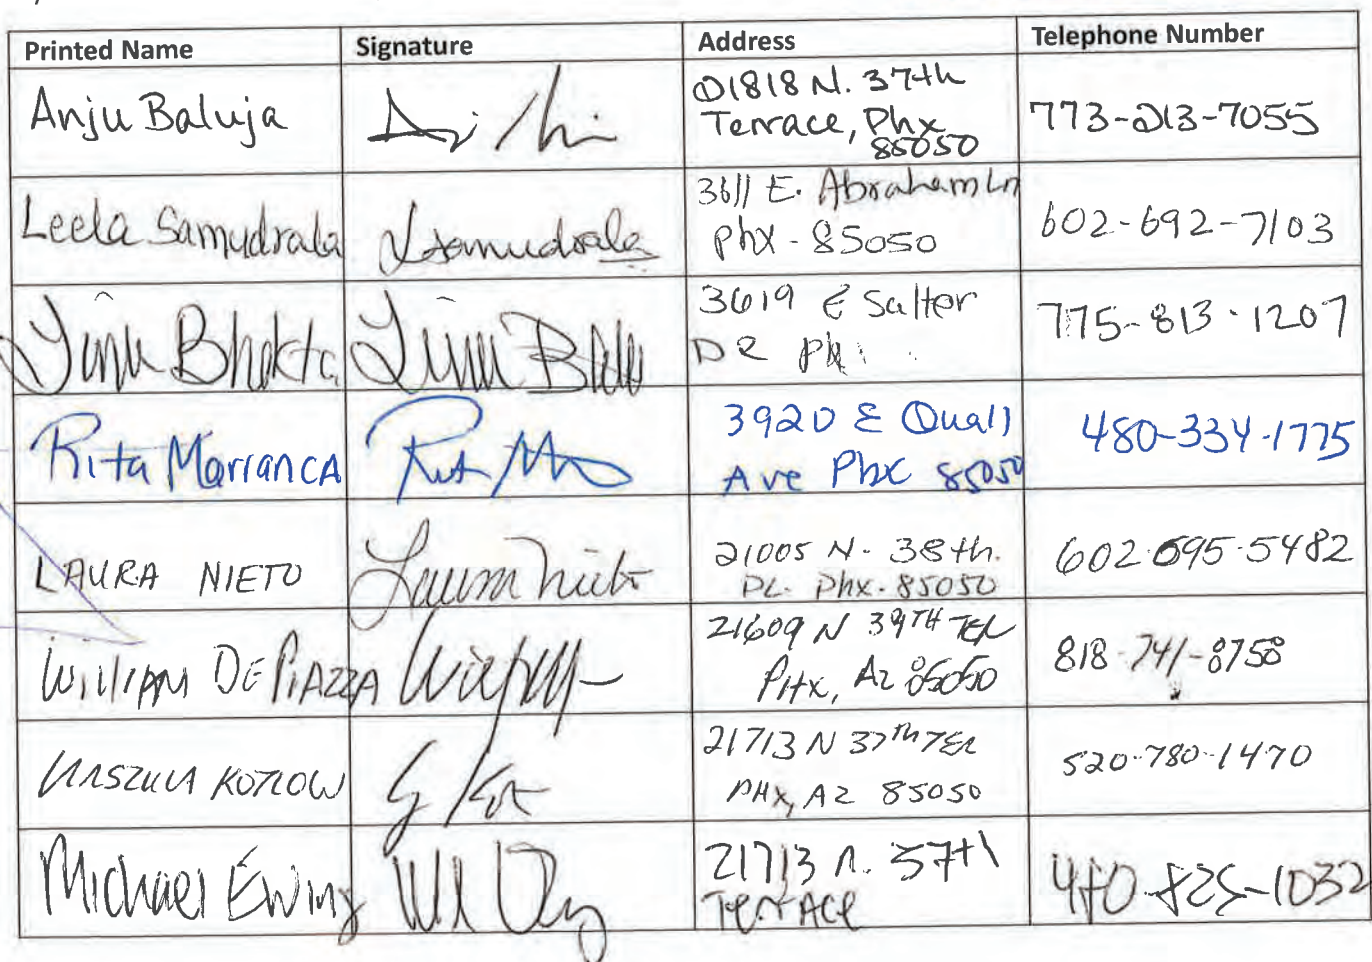 Printed Name Signature Address Telephone Number
Anju Baluja
21818 N. 37th
Terrace, Phx
85050
773-213-7055
Leela Samudrala
Lsamudrala
3611 E. Abraham Ln
Phx - 85050
602-692-7103
Bhakta
3619 E Salter
DR Phx
775-813-1207
Rita Marranca
3920 E Quail
Ave Phx 85050
480-334-1775
LAURA NIETO
Laura Nieto
21005 N. 38th.
PL. Phx. 85050
602.695.5482
William DE PIAZZA
21609 N 39TH TER
PHX, AZ 85050
818-741-8758
URSZULA KOTLOW
21713 N 37th TER
PHX, AZ 85050
520-780-1470
Michael Ewing
21713 N. 37th
Terrace
480-825-1032